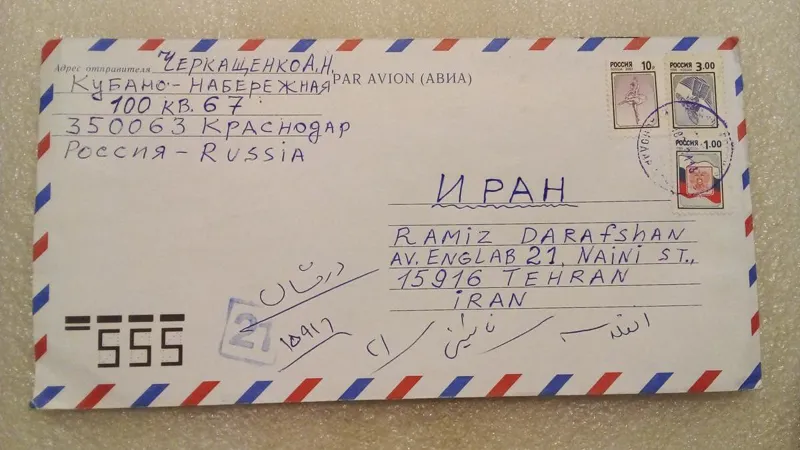 Адрес отправителя ЧЕРКАЩЕНКО А.Н.
КУБАНО-НАБЕРЕЖНАЯ
100 КВ. 67
350063 КРАСНОДАР
РОССИЯ - RUSSIA
PAR AVION (АВИА)
РОССИЯ 10р
РОССИЯ 3.00
РОССИЯ 1.00
ИРАН
RAMIZ DARAFSHAN
AV. ENGLAB 21, NAINI ST.,
15916 TEHRAN
IRAN
درفشان
21
۱۵۹۱۶
انقلاب نائینی ۲۱